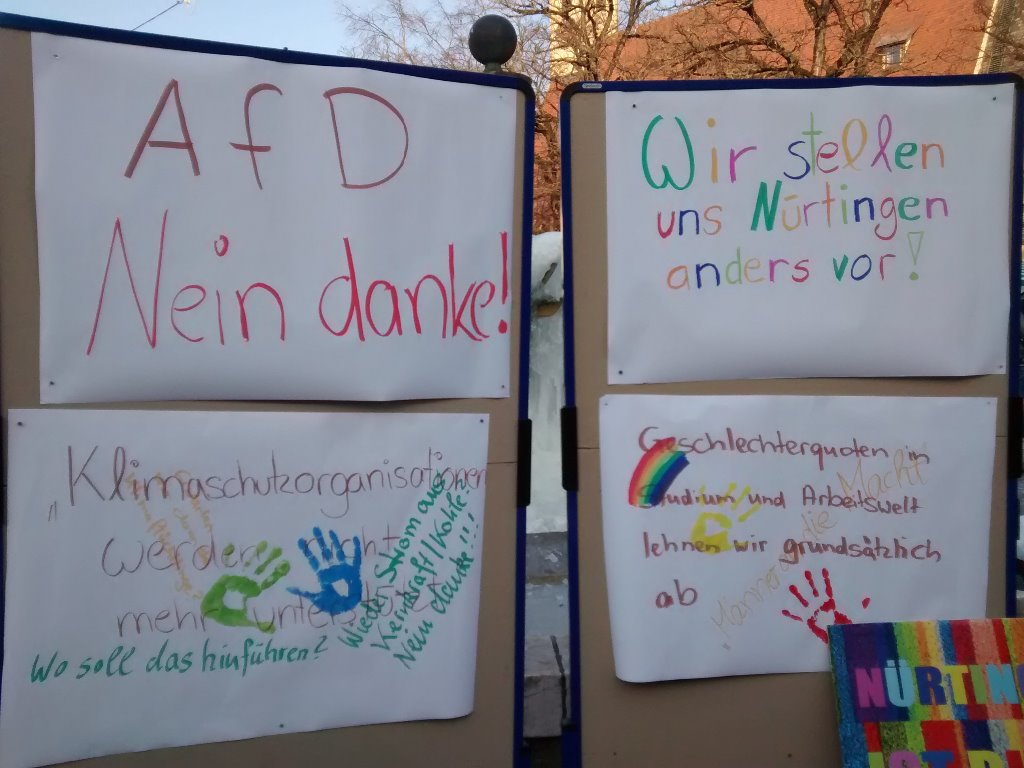 AfD
Nein danke!
Wir stellen
uns Nürtingen
anders vor!
„Klimaschutzorganisationen
werden nicht
mehr
Wo soll das hinführen?
Wieder Strom aus
Kernkraft/Kohle?
Nein danke!!!
Geschlechterquoten im
Studium und Arbeitswelt
lehnen wir grundsätzlich
ab
Männer an die Macht
NÜRTIN
IST